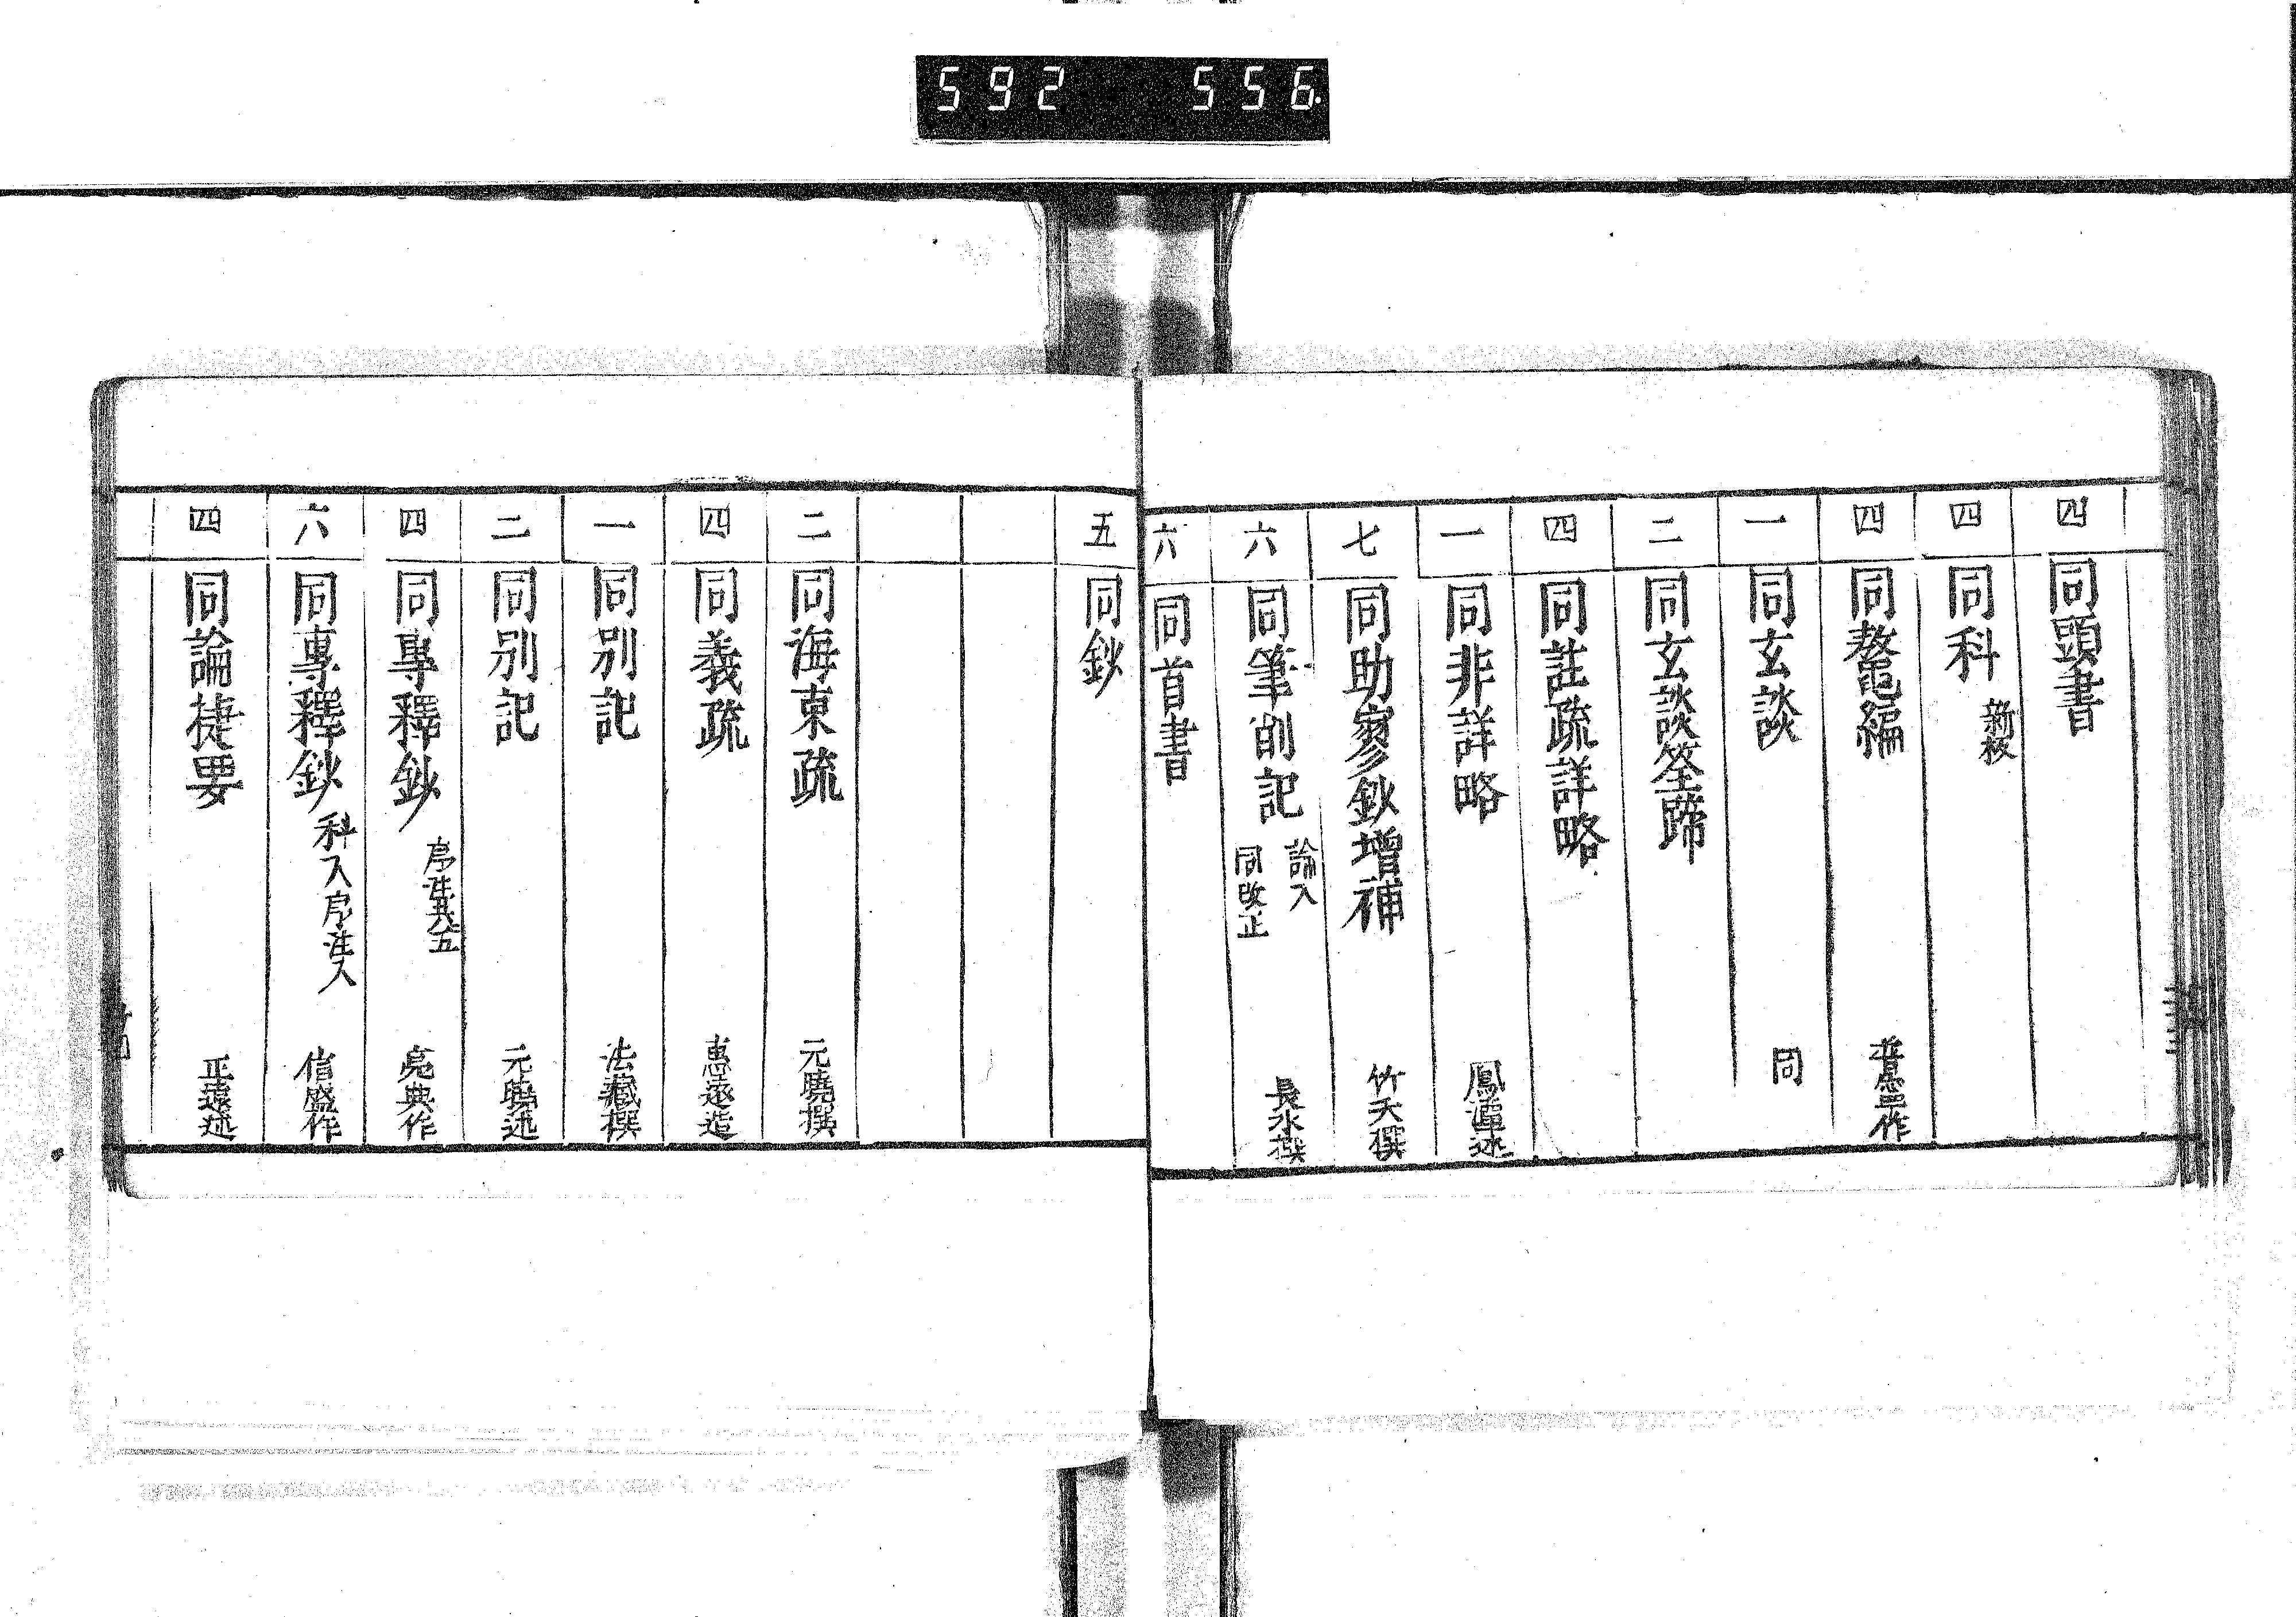 592 556.
四 同頭書
四 同科 新校
四 同鼇編 普寂作
一 同玄談 同
二 同玄談筌蹄
四 同註疏詳略
一 同非詳略 鳳潭述
七 同助寥鈔增補 竹天撰
六 同筆削記 論入 同改正 長水撰
六 同首書
五 同鈔
二 同海東疏 元曉撰
四 同義疏 惠遠造
一 同別記 法藏撰
二 同別記 元曉述
四 同專釋鈔 序注共五 亮典作
六 同專釋鈔 科入序注入 信盛作
四 同論捷要 正遠述